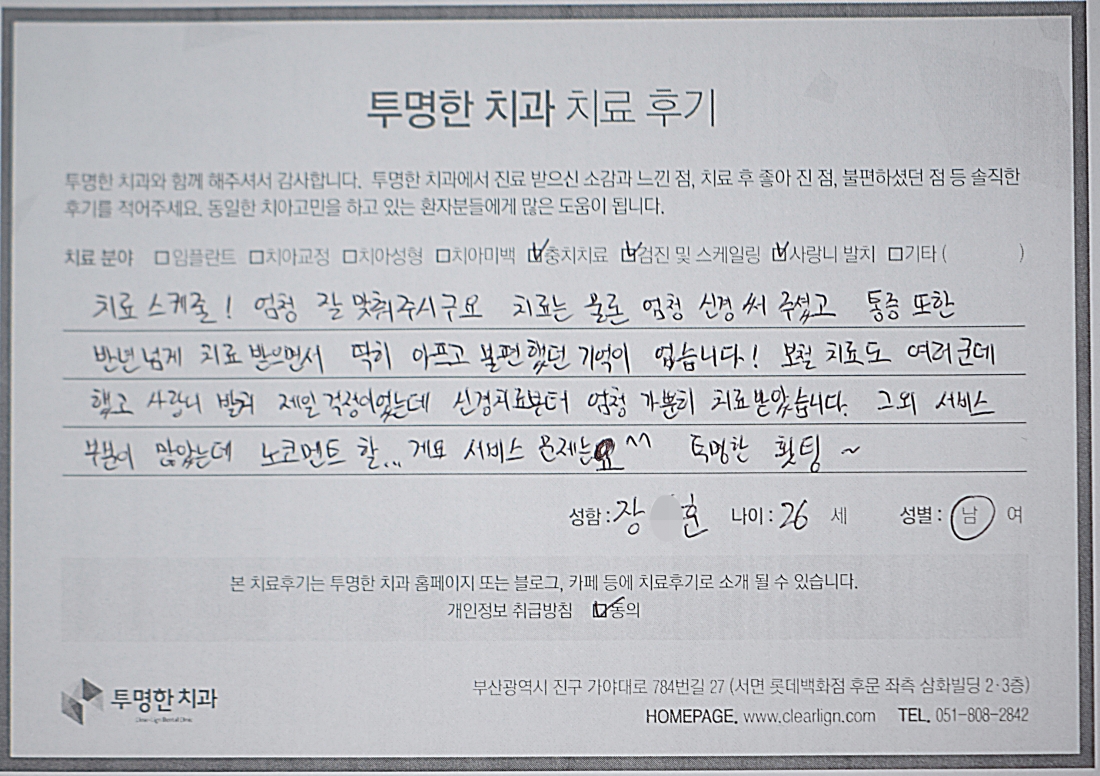 투명한 치과 치료 후기
투명한 치과와 함께 해주셔서 감사합니다. 투명한 치과에서 진료 받으신 소감과 느낀 점, 치료 후 좋아 진 점, 불편하셨던 점 등 솔직한
후기를 적어주세요. 동일한 치아고민을 하고 있는 환자분들에게 많은 도움이 됩니다.
치료 분야 □임플란트 □치아교정 □치아성형 □치아미백 ☑충치치료 ☑검진 및 스케일링 ☑사랑니 발치 □기타 ( )
치료 스케줄! 엄청 잘 맞춰주시구요 치료는 물론 엄청 신경 써 주셨고 통증 또한
반년넘게 치료 받으면서 딱히 아프고 불편했던 기억이 없습니다! 보철 치료도 여러군데
했고 사랑니 발치 제일 걱정이었는데 신경치료부터 엄청 가뿐히 치료받았습니다. 그외 서비스
부분이 많았는데 노코멘트 할... 게요 서비스 문제는요 ^^ 투명한 횟팅 ~
성함 : 장 훈 나이 : 26 세 성별 : 남 여
본 치료후기는 투명한 치과 홈페이지 또는 블로그, 카페 등에 치료후기로 소개 될 수 있습니다.
개인정보 취급방침 ☑동의
투명한 치과
부산광역시 진구 가야대로 784번길 27 (서면 롯데백화점 후문 좌측 삼화빌딩 2·3층)
HOMEPAGE. www.clearlign.com TEL. 051-808-2842